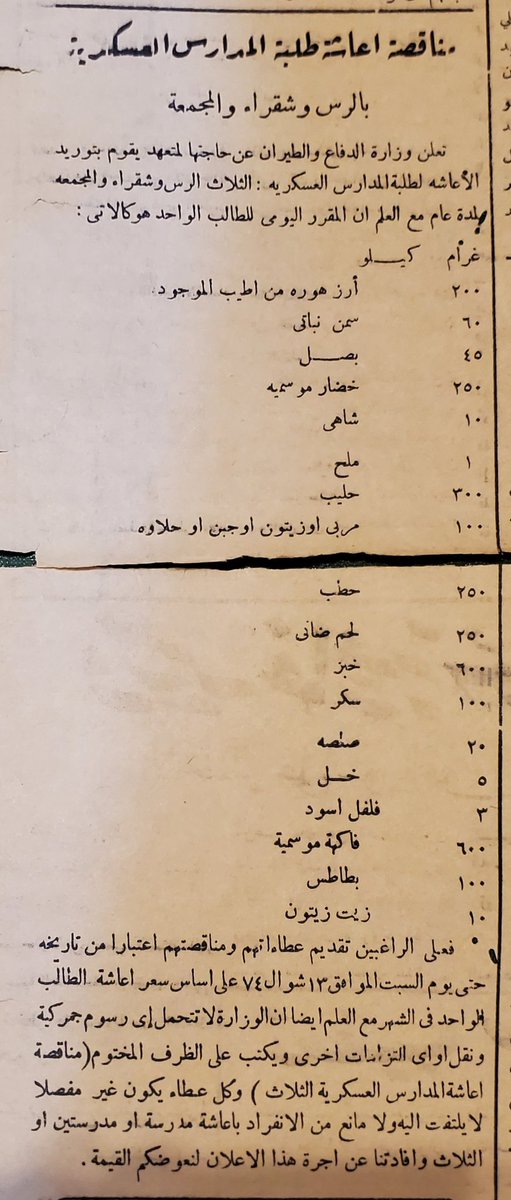 مناقصة اعاشة طلبة المدارس العسكرية
بالرس وشقراء والمجمعة
تعلن وزارة الدفاع والطيران عن حاجتها لمتعهد يقوم بتوريد
الأعاشه لطلبة المدارس العسكريه : الثلاث الرس وشقراء والمجمعه
لمدة عام مع العلم ان المقرر اليومى للطالب الواحد هو كالاتى :
غرام كيـــلو
٢٠٠ أرز هوره من اطيب الموجود
٦٠ سمن نباتى
٤٥ بصـــل
٢٥٠ خضار موسميه
١٠ شاهى
١ ملح
٣٠٠ حليب
١٠٠ مربى او زيتون او جبن او حلاوه
٢٥٠ حطب
٢٥٠ لحم ضانى
٦٠٠ خبز
١٠٠ سكر
٢٠ صلصه
٥ خـــل
٣ فلفل اسود
٦٠٠ فاكهة موسمية
١٠٠ بطاطس
١٠ زيت زيتون
فعلى الراغبين تقديم عطاءاتهم ومناقصتهم اعتبارا من تاريخه
حتى يوم السبت الموافق ١٣ شوال ٧٤ على اساس سعر اعاشة الطالب
الواحد فى الشهر مع العلم ايضا ان الوزارة لا تتحمل اى رسوم جمركية
ونقل او اى التزامات اخرى ويكتب على الظرف المختوم ( مناقصة
اعاشة المدارس العسكرية الثلاث ) وكل عطاء يكون غير مفصلا
لا يلتفت اليه ولا مانع من الانفراد باعاشة مدرسة او مدرستين او
الثلاث وافادتنا عن اجرة هذا الاعلان لنعوضكم القيمة .